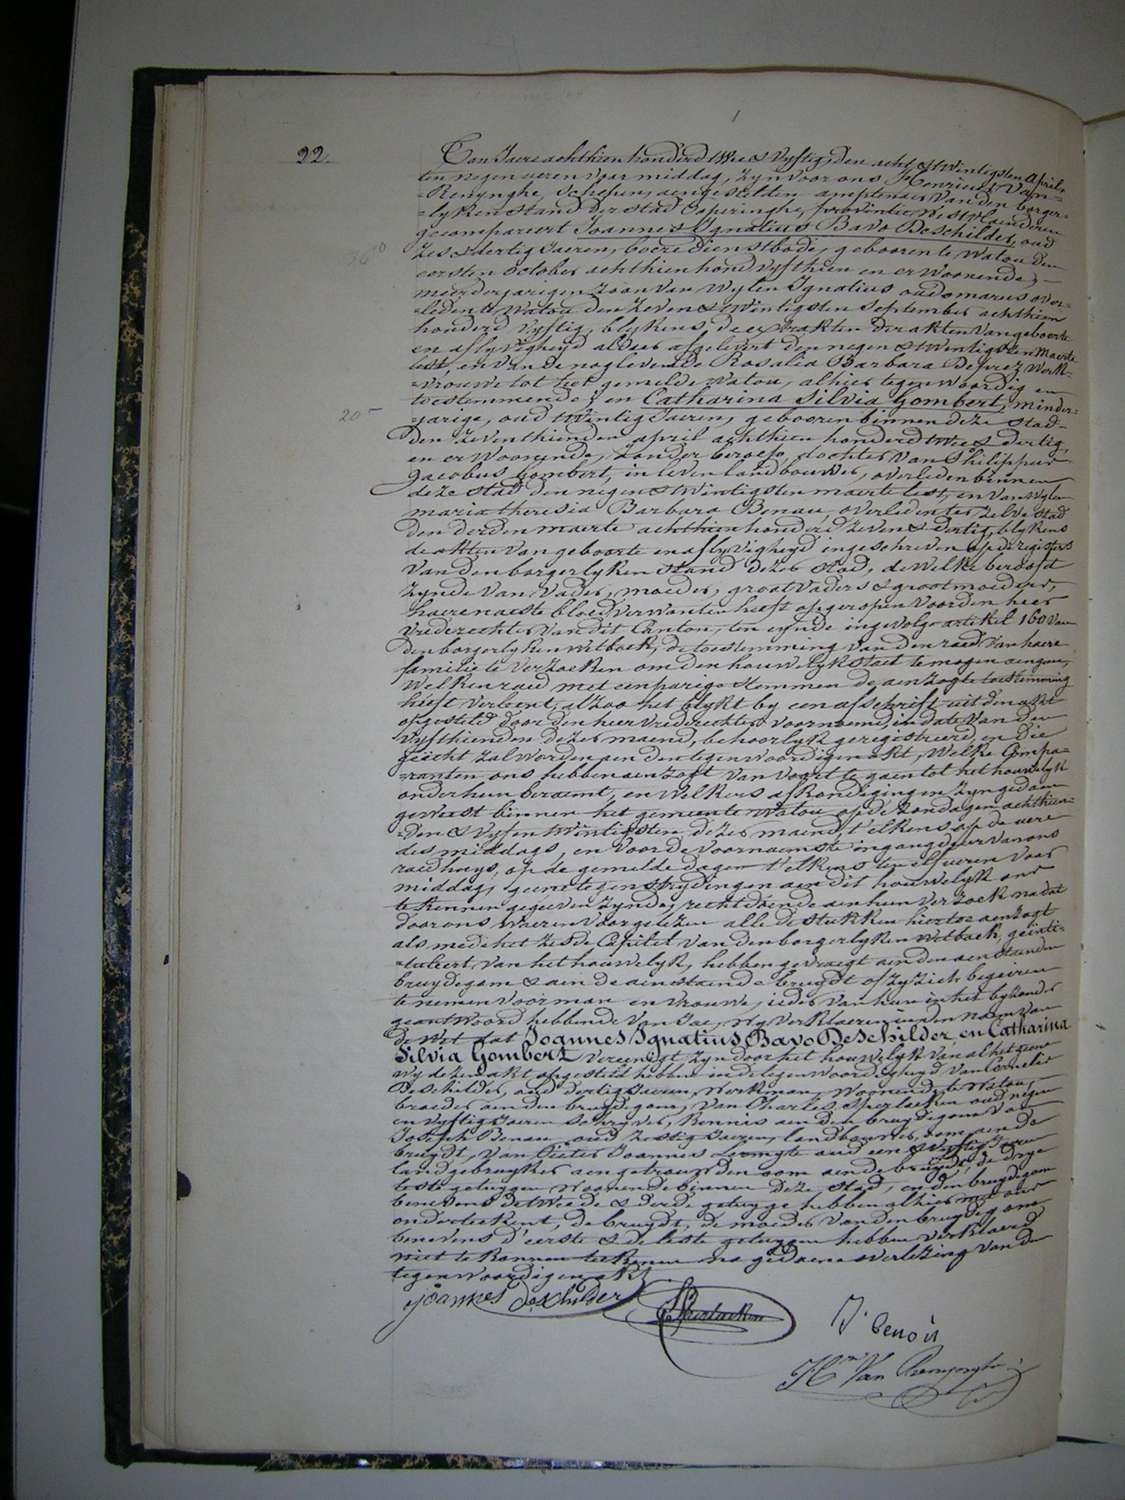 22.
Ten Jaere achthien honderd twee & vyftig, den acht & twintigsten April,
ten negen ueren voor middag, zyn voor ons Henricus Van=
=Renynghe, Schepen, aengestelden amptenaer van den borger=
=lyken stand der stad Poperinghe, provintie Westvlaenderen
gecompareert Joannes Ignatius Bavo Deschilder, oud
36
zes & dertig Jaeren, boere dienstbode, geboren te Watou den
eersten October achthien hond vyfthien en er woonende,
meerderjarigen zoon van wylen Ignatius Oudomarus over=
=leden te Watou den zeven & twintigsten September achthien
honderd vyftig, blykens de extrakten der akten van geboorte
en aflyvigheyd aldaer afgelevert den negen & twintigsten Maerte
lest, en van de naglevende Rosalia Barbara Deprez werk=
=vrouwe tot het gemelde Watou, alhier tegenwoordig en
toestemmende; en Catharina Silvia Gombert, minder=
20
=jarige, oud twintig Jaeren, geboren binnen deze stad
den zeventhienden april achthien honderd twee & dertig,
en er woonende, zonder beroep, dochter van Philippus
Jacobus Gombert, in leven landbouwer, overleden binnen
deze stad den negen & twintigsten maerte lest, en van wylen
Maria Theresia Barbara Benau, overleden ter zelve stad
den derden maerte achthien honderd zeven & dertig, blykens
de akten van geboorte en aflyvigheyd ingeschreven op de registers
van den borgerlyken stand dezer stad, de welke beroofd
zynde van vader, moeder, grootvaders & grootmoeders,
haere naeste bloedverwanten heeft opgeropen voor den heer
vrederechter van dit Canton, ten eynde ingevolge artikel 160 van
den borgerlyken wetboek, de toestemming van den raed van haere
familie te verzoeken om den houwelykstaet te mogen aengaen,
welken raed met eenparige stemmen de aenzogte toestemming
heeft verleent, alzoo het blykt by een afschrift uit den akt
opgesteld door den heer vrederechter voornoemd, in date van den
vyfthienden dezer maend, behoorlyk geregistreerd, en die
gehecht zal worden aen den tegenwoordigen akt, welke Compa=
=ranten ons hebben aenzogt van voort te gaen tot het houwelyk
onder hun beraemt, en welkers afkondigingen zyn gedaen
geweest binnen het gemeente Watou op de zondagen achthien=
=den & vyf en twintigsten dezer maend, t'elkens op de uere
des middags, en voor de voornaemste ingang deur van ons
raedhuys, op de gemelde dagen t'elkens ten elf ueren voor
middag, geene tegenstrydingen aen dit houwelyk ons
te kennen gegeven zynde, recht doende aen hun verzoek na dat
door ons waeren voorgelezen alle de stukken hiertoe aenzogt
als mede het zesde Capittel van den borgerlyken Wetboek, geinti=
=tuleert, Van het houwelyk, hebben gevraegt aen den aenstaenden
bruydegom & aen de aenstaende bruydt of zy zich begeiren
te nemen voor man en vrouwe, ieder van hun in het byzonder
geantwoord hebbende van Jae, wy verklaeren in den naem van
de Wet dat Joannes Ignatius Bavo Deschilder, en Catharina
Silvia Gombert vereenigt zyn door het houwelyk, van al het gene
wy dezen akt opgesteld hebben in de tegenwoordigheyd van Cornelis
Deschilder, oud dertig Jaeren, werkman, woonende te Watou,
broeder aen den bruydegom, van Charles oud negen
en vyftig Jaeren, schryver, kennis aen den bruydegom, van
Joseph Benau, oud zestig Jaeren, landbouwer, oom aen de
bruydt, van Pieter Joannes oud een & vyftig Jaeren
landgebruyker aengetrouwden oom aen de bruydt, de drye
leste getuygen woonende binnen deze stad, en den bruydegom
benevens de tweede & derde getuyge hebben alhier met ons
onderteekent, de bruydt, de moeder van den bruydegom
benevens d'eerste & de leste getuygen hebben verklaerd
niet te kunnen teekenen na gedaene overlezing van den
tegenwoordigen akt.
joannes deschilder
J. benoit
Hri Van Renynghe